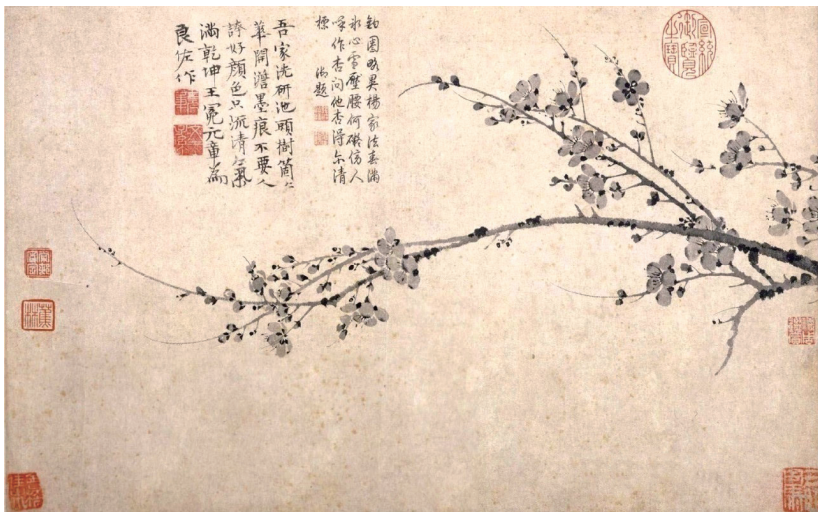 宣統御覽之寶
鈎圈畧異楊家法春滿
氷心雪壓腰何礙仿人
喚作杏問他杏得尒清
標 御題
吾家洗研池頭樹箇〻
華開澹墨痕不要人
誇好顏色只流清氣
滿乾坤王冕元章為
良佐作